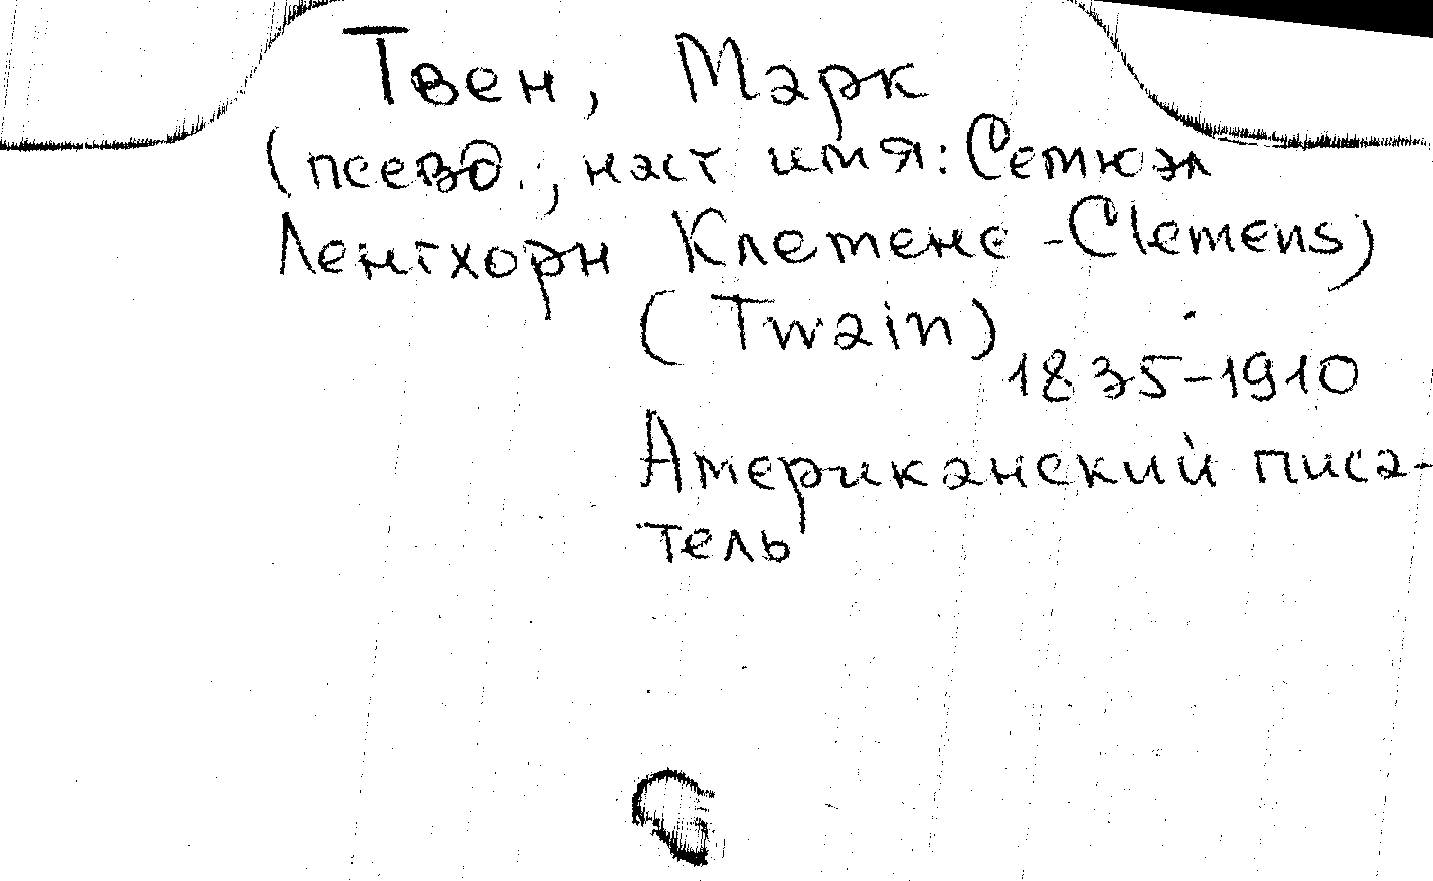 Твен, Марк
(псевд., наст имя: Семюэл
Ленгхорн Клеменс - Clemens)
(Twain)
1835-1910
Американский писа-
тель